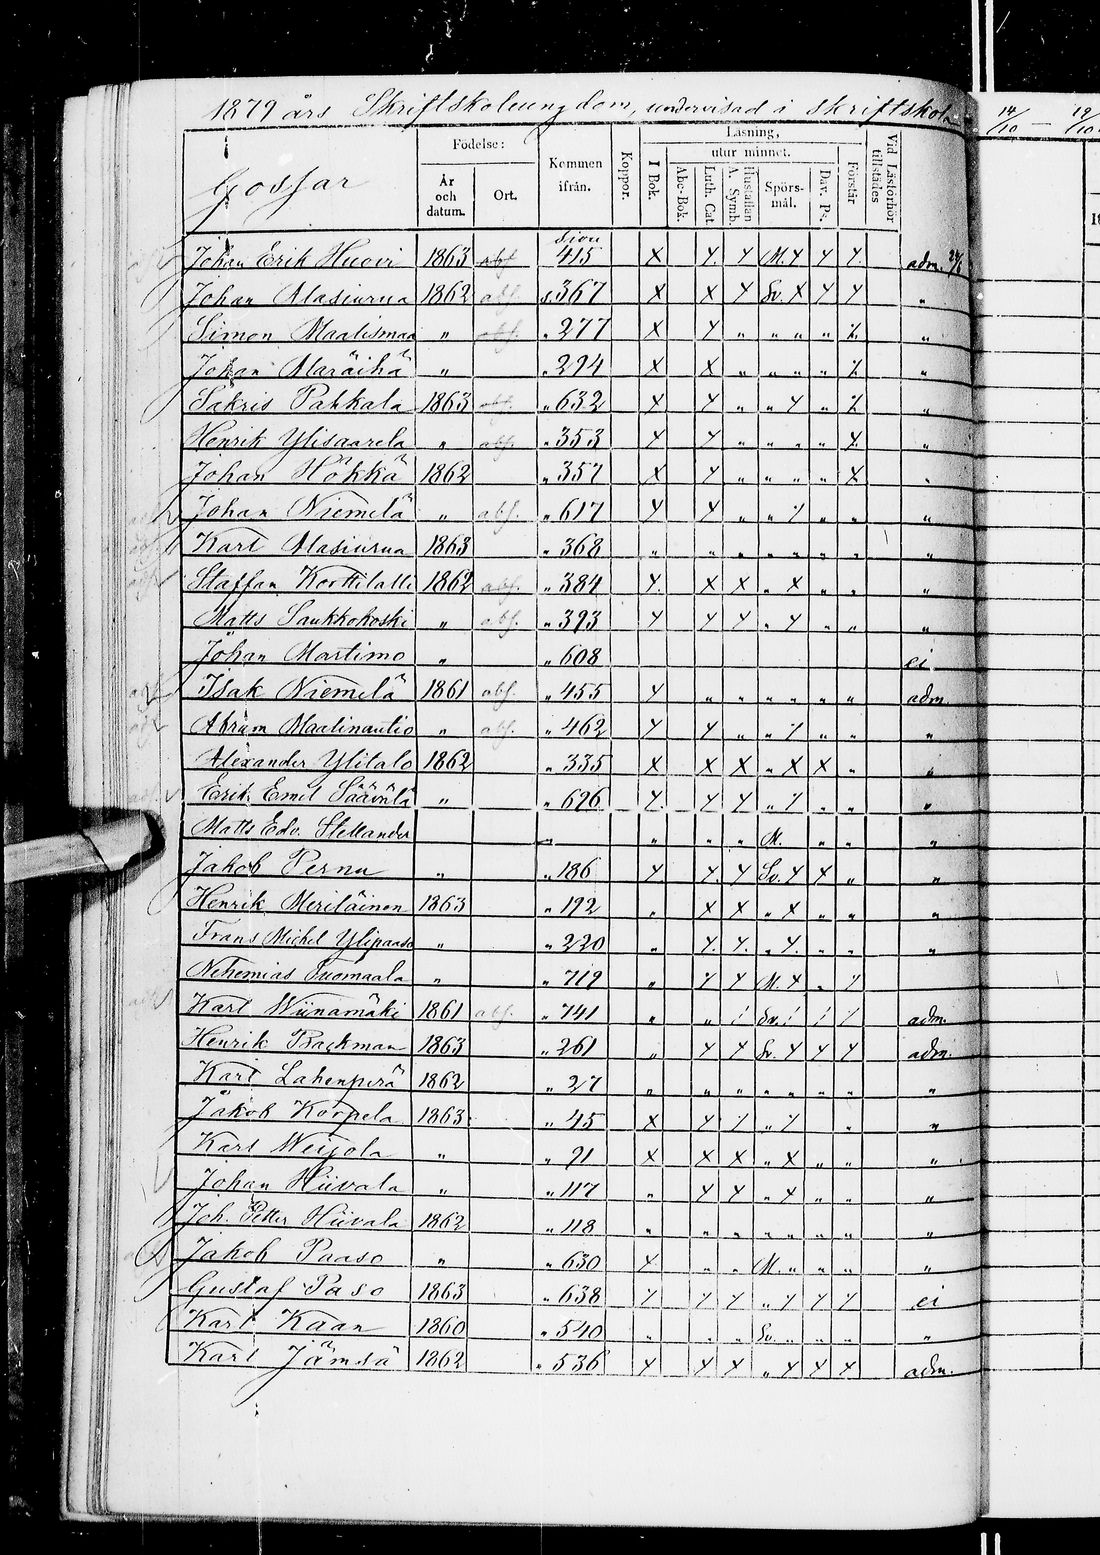 1879 års Skriftskoleungdom, undervisad i skriftskola 14/10 — 19/10
Gossar
Födelse: År och datum. Ort. Kommen ifrån. Koppor. Läsning, I Bok. utur minnet. Abc-Bok. Luth. Cat. A. Symb. Hustaflan Spörs-mål. Dav. Ps. Förstår Vid Läsförhör tillstädes
Johan Erik Huovi 1863 abs. sion 415 X Y. Y M. Y Y Y. adm.
Johan Alasiurua 1862 abs. s. 367 X X Y Sv. X Y Y "
Simon Maalismaa " abs. " 277 X Y " " " " "
Johan Alaräihä " " 294 X X " " " " "
Sakris Pahkala 1863 abs. " 632 X Y " " Y " "
Henrik Ylisaarela " abs. " 353 Y Y " " " " Y. "
Johan Hökkä 1862 " 357 X Y " " " " X "
Johan Niemelä " abs. " 617 Y Y " " / " " "
Karl Alasiurua 1863 " 368 " " " " " " " "
Staffan Korttilalli 1862 abs. " 384 Y. X X " X " " "
Matts Saukkokoski " abs. " 393 Y Y Y " Y " " "
Johan Martimo " " 608 ei
Isak Niemelä 1861 abs. " 455 Y " " " " " " adm.
Abram Maalinautio " abs. " 462 Y Y " " / " " "
Alexander Ylitalo 1862 " 335 X X X " X X " "
Erik Emil Säävälä " " 696 Y. Y Y " / " " "
Matts Edv. Stellander " " " " M. " " "
Jakob Pernu " " 186 Y. Y. Y Sv. Y X " "
Henrik Meriläinen 1863 " 192 " X X " X " " "
Frans Michel Ylipaaso " " 220 " Y. Y. " Y. " " "
Nehemias Tuomaala " " 719 " / Y M. X " /
Karl Wiinamäki 1861 abs. " 741 " " / Sv. / / / adm.
Henrik Backman 1863 " 261 " Y Y Sv. Y Y Y adm.
Karl Lahenperä 1862 " 27 " " " " " " " "
Jakob Korpela 1863 " 45 X Y / " / " "
Karl Weijola " " 91 X X X " X " " "
Johan Hiivala " " 117 " Y Y " Y " " "
Joh. Petter Hiivala 1862 " 118 " " " " " " " "
Jakob Paaso " " 630 Y " " M. " " " "
Gustaf Paso 1863 " 638 / Y Y " / Y / ei
Karl Kaan 1860 " 540 " " " Sv. " " " "
Karl Jämsä 1862 " 536 Y Y Y " Y Y Y adm.